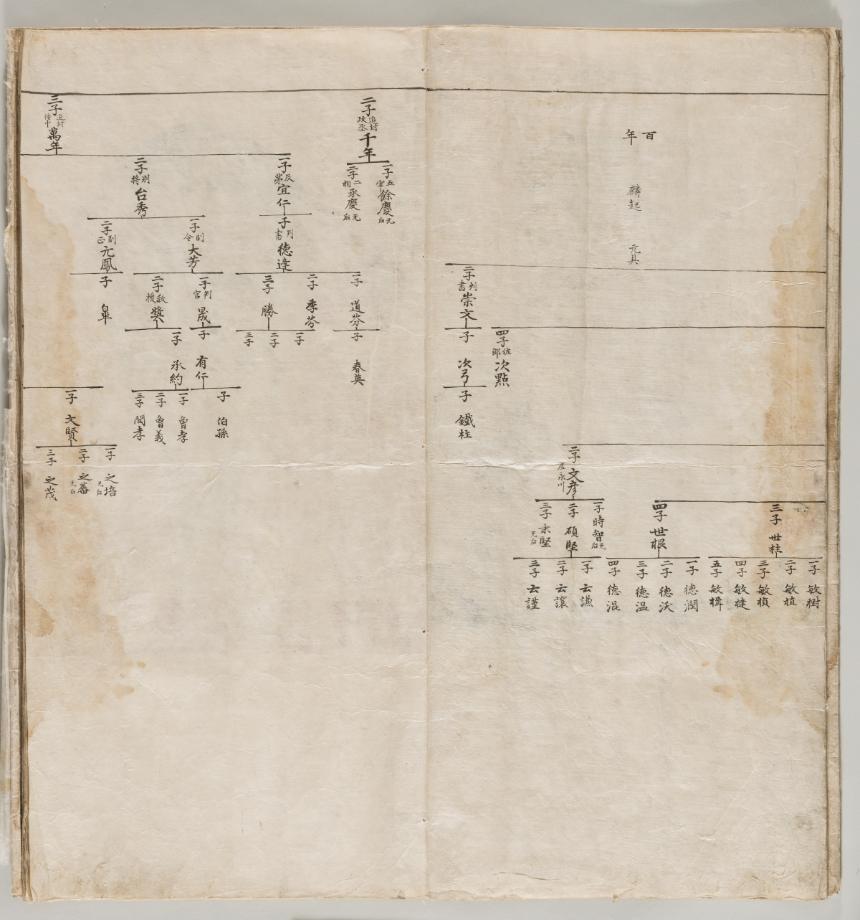 百年
二子 崇文
子 次弓
子 鐵柱
四子 次點
二子 文彦
一子 時智
二子 碩堅
三子 永堅
三子 世柱
四子 世根
一子 敏樹
二子 敏植
三子 敏楨
四子 敏
五子 敏楫
一子 德潤
二子 德沃
三子 德温
四子 德混
一子 云謙
二子 云讓
三子 云謹
二子 千年
一子 餘慶
二子 承慶
三子 萬年
一子 宜仁
二子 台秀
子 德逵
一子 道芬
二子 季芬
三子 勝
子 春英
一子
二子
三子
一子 大芳
二子 元鳳
一子 晟
二子 奬
子 皐
子 有仁
一子 承約
子 伯孫
一子 曾孝
二子 曾義
三子 閔孝
一子 文賢
一子 之培
二子 之蕃
三子 之茂